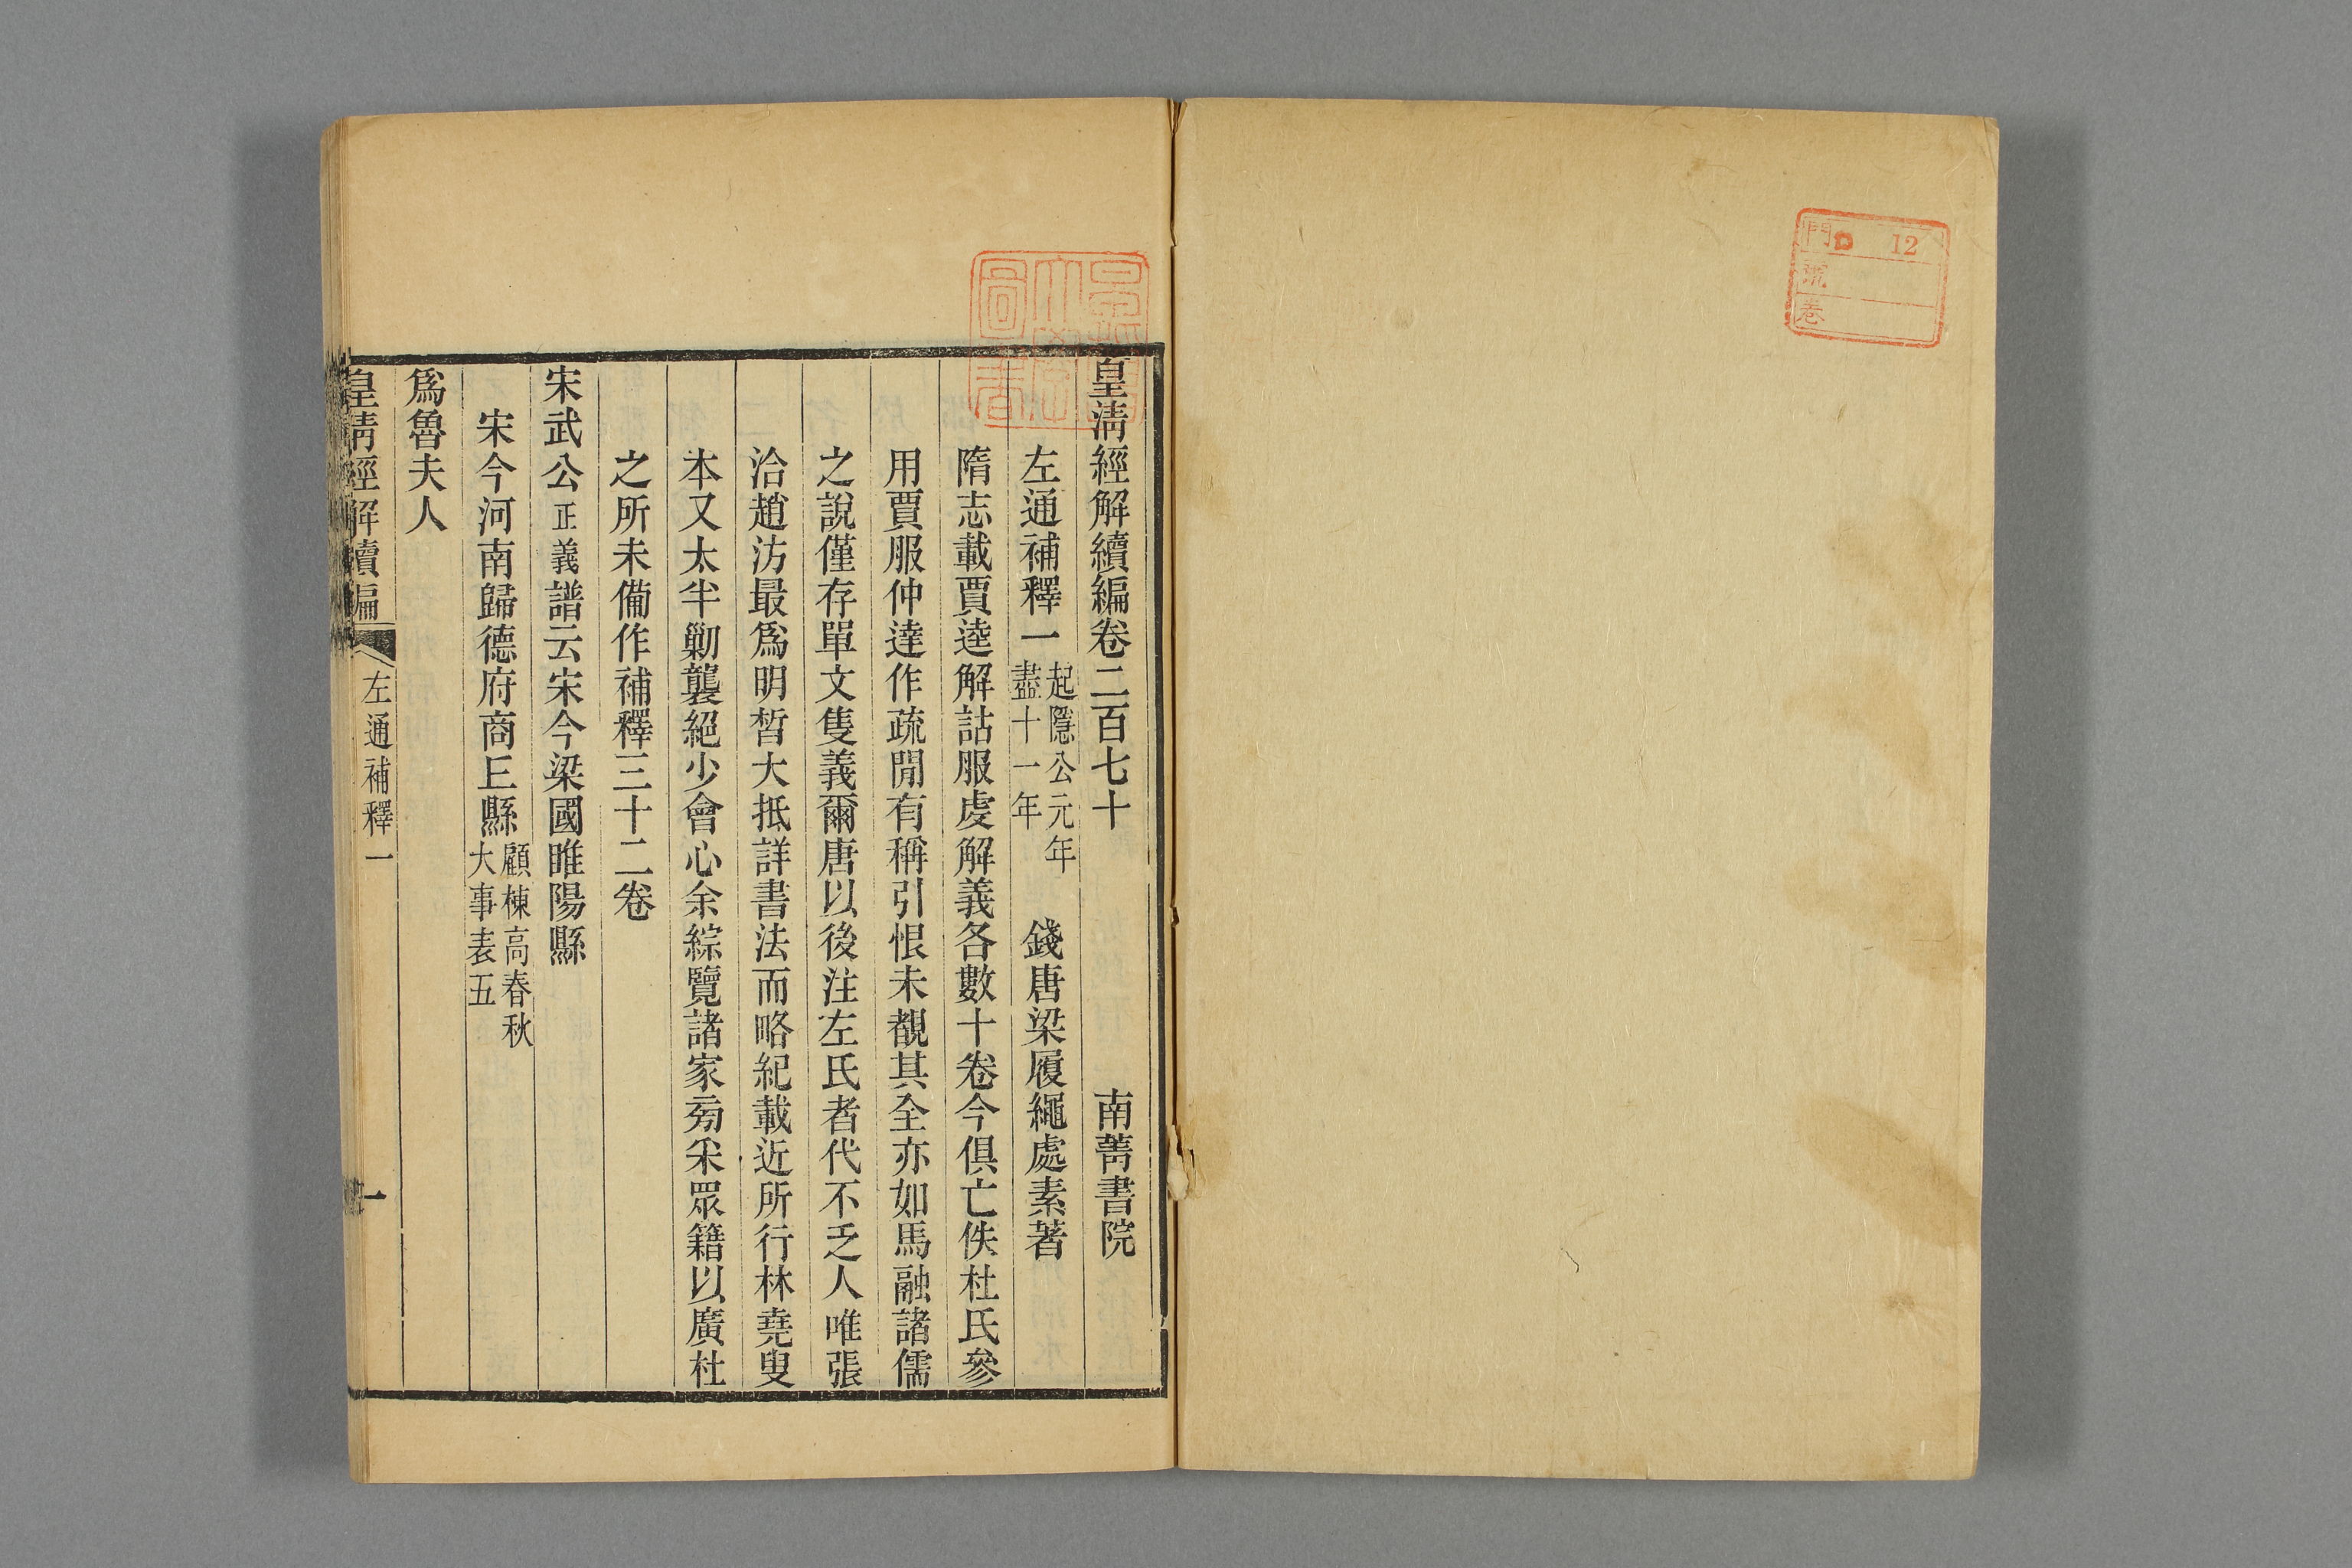 門 12
號
卷
皇淸經解續編卷二百七十 南菁書院
左通補釋一 起隱公元年 盡十一年 錢唐梁履繩處素著
隋志載賈逵解詁服虔解義各數十卷今俱亡佚杜氏參
用賈服仲達作疏閒有稱引恨未覩其全亦如馬融諸儒
之說僅存單文隻義爾唐以後注左氏者代不乏人唯張
洽趙汸最爲明晳大抵詳書法而略紀載近所行林堯叟
本又太半勦襲絕少會心余綜覽諸家旁采眾籍以廣杜
之所未備作補釋三十二卷
宋武公 正義譜云宋今梁國睢陽縣
宋今河南歸德府商丘縣 顧棟高春秋 大事表五
爲魯夫人
皇淸經解續編 左通補釋一 一